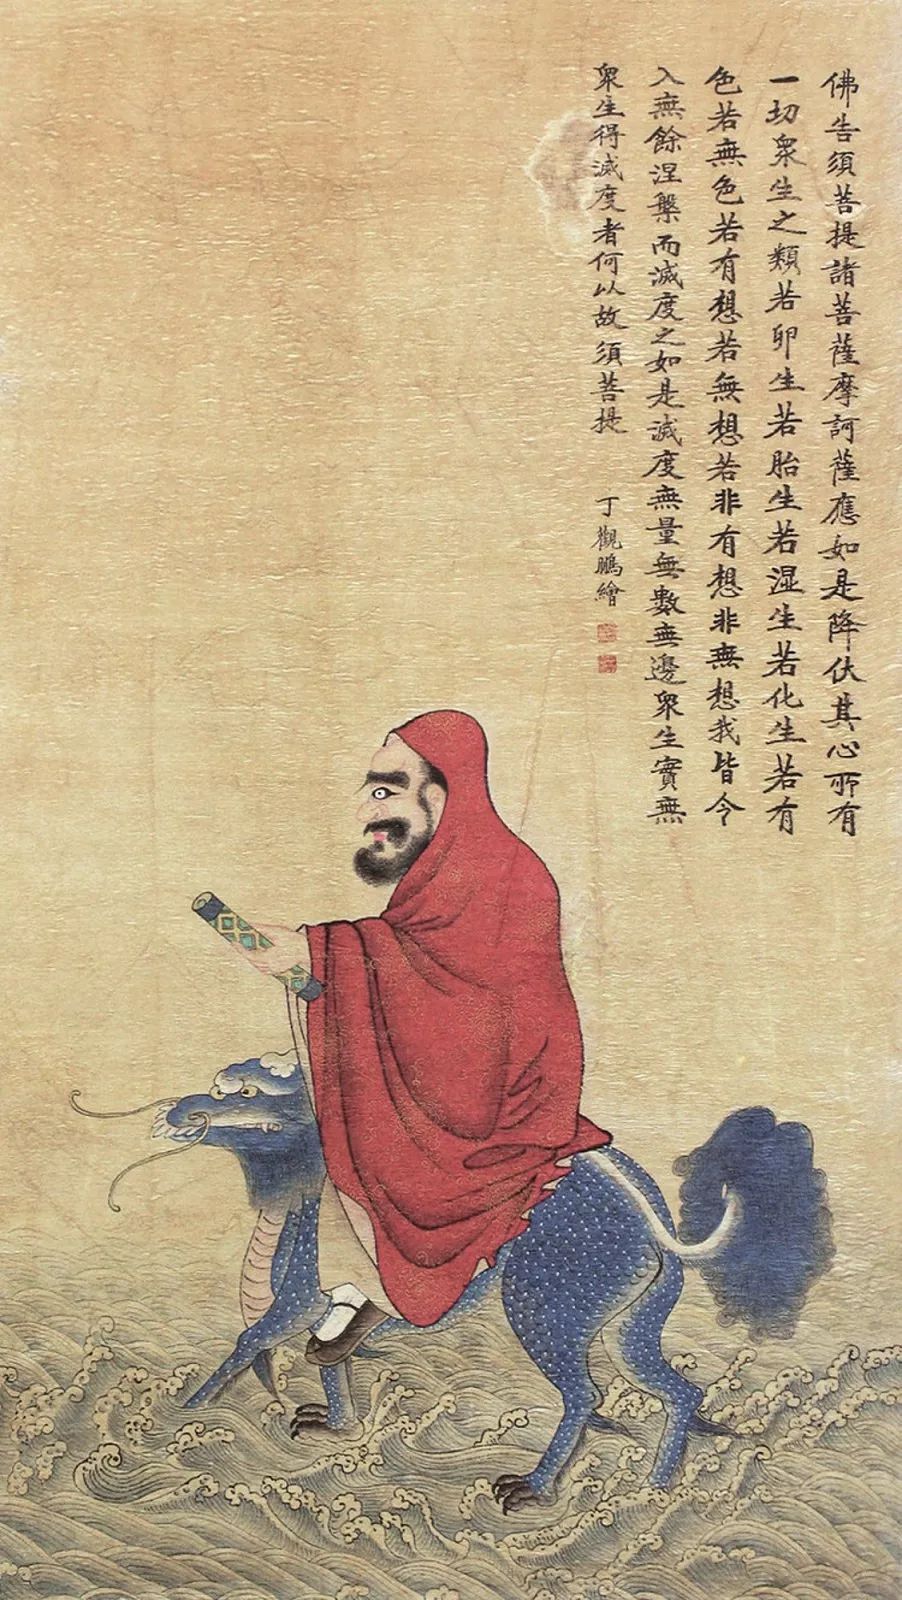 佛告須菩提諸菩薩摩訶薩應如是降伏其心所有
一切衆生之類若卵生若胎生若濕生若化生若有
色若無色若有想若無想若非有想非無想我皆令
入無餘涅槃而滅度之如是滅度無量無數無邊衆生實無
衆生得滅度者何以故須菩提
丁觀鵬繪